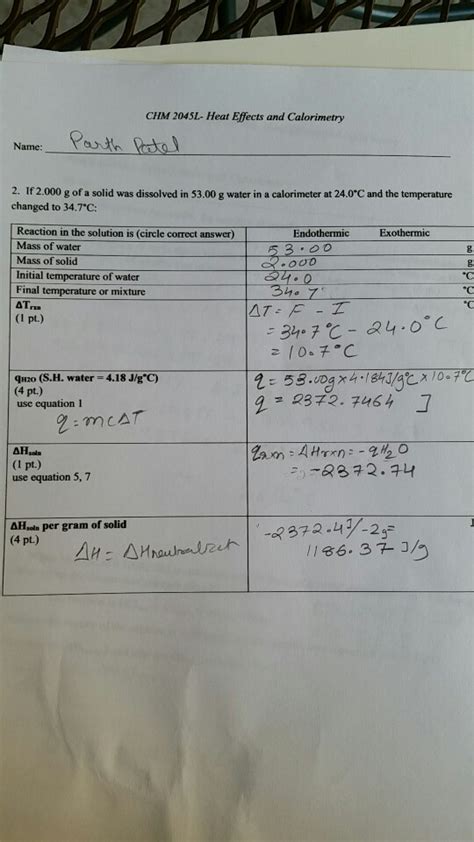 CHM 2045L- Heat Effects and Calorimetry
Name: Parth Patel
2. If 2.000 g of a solid was dissolved in 53.00 g water in a calorimeter at 24.0°C and the temperature
changed to 34.7°C:
Reaction in the solution is (circle correct answer) Endothermic Exothermic
Mass of water 53.00 g
Mass of solid 2.000 g
Initial temperature of water 24.0 °C
Final temperature or mixture 34.7 °C
ΔTrxn
(1 pt.)
ΔT = F - I °C
= 34.7°C - 24.0°C
= 10.7°C
qH2O (S.H. water = 4.18 J/g°C)
(4 pt.)
use equation 1
q = mCΔT
q = 53.00g x 4.184J/g°C x 10.7°C
q = 2372.7464 J
ΔHsoln
(1 pt.)
use equation 5, 7
qrxn = ΔHrxn = -qH2O
= -2372.74
ΔHsoln per gram of solid
(4 pt.)
ΔH = ΔH
-2372.4J/-2g=
1186.37 J/g